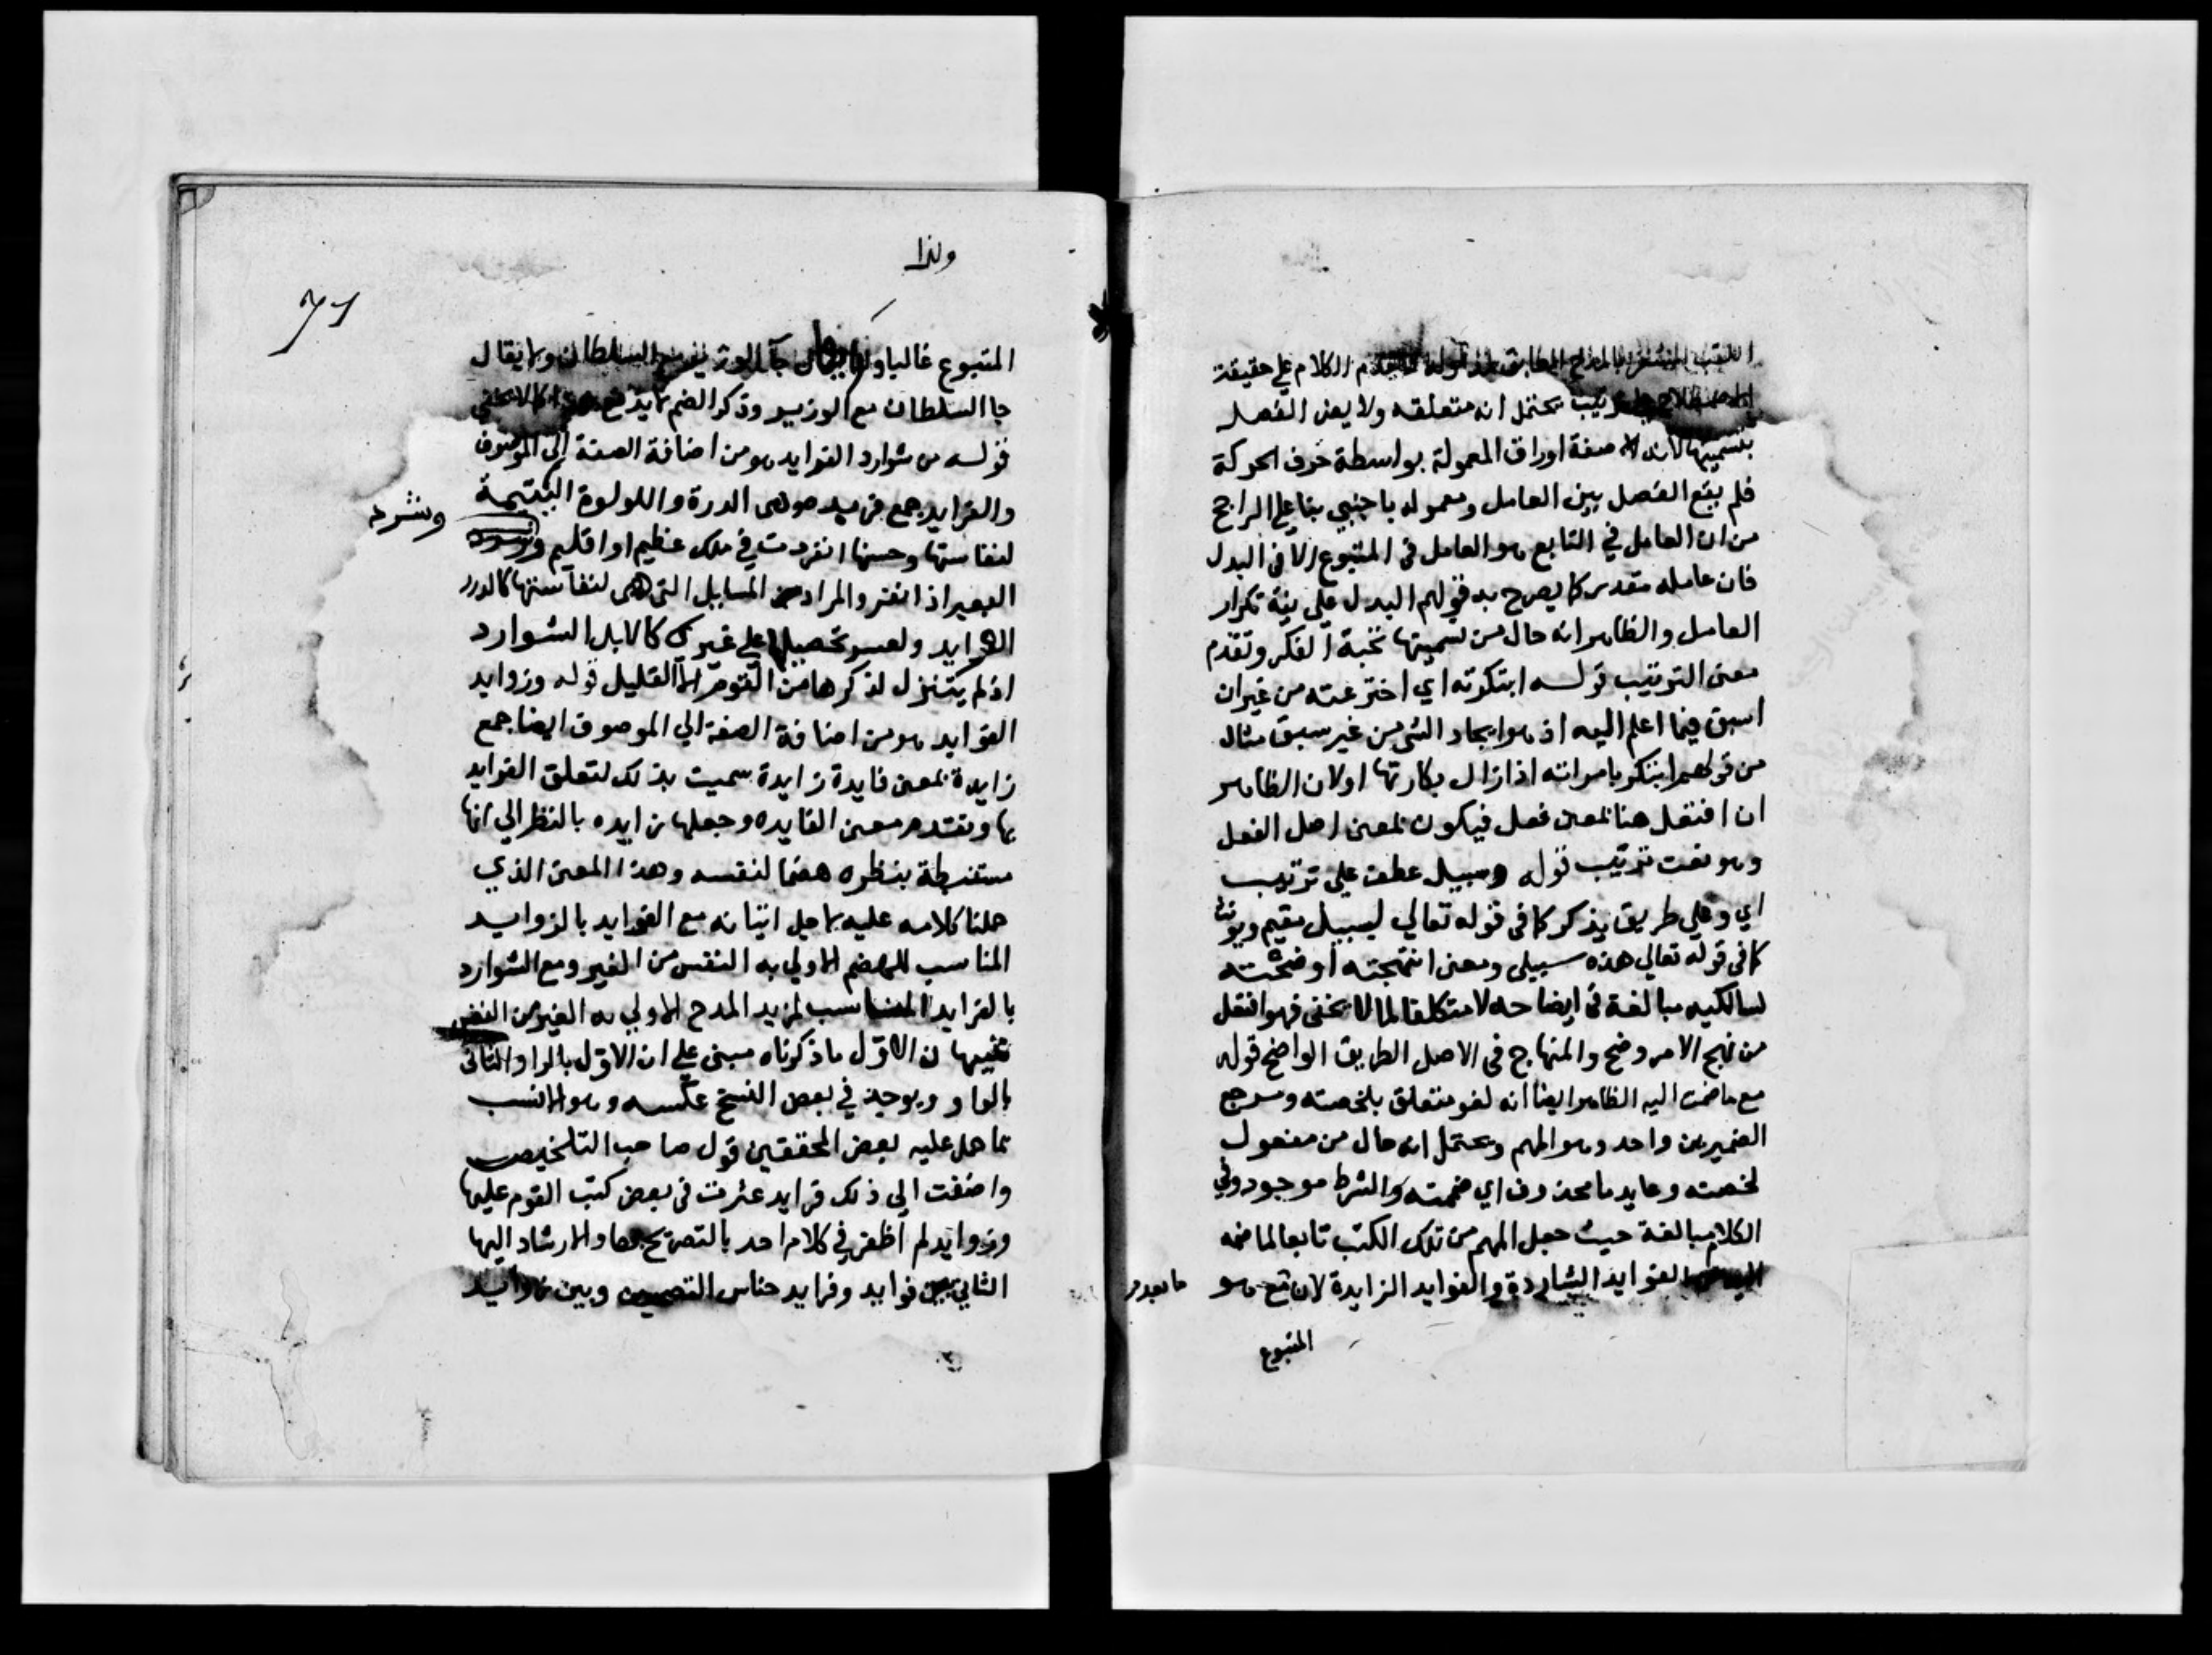 اللقب المشعر بالمدح المطابق له قوله تقدم الكلام علي حقيقة
ترتيب يحتمل انه متعلقه ولا يضر الفصل
بتسميتها لانه لا صفة اوراق المعمولة بواسطة حرف الحركة
فلم يقع الفصل بين العامل ومعموله باجنبي بنا علي الراجح
من ان العامل في التابع هو العامل في المتبوع الا في البدل
فان عامله مقدر كما يصرح به قولهم البدل علي نية تكرار
العامل والظاهر انه حال من تسميتها نخبة الفكر وتقدم
معنى الترتيب قوله ابتكرته اي اخترعته من غير ان
اسبق فيما اعلم اليه اذ هو ايجاد الشي من غير سبق مثال
من قولهم ابتكر بامراته اذا ازال بكارتها اولان الظاهر
ان افتعل هنا بمعنى فعل فيكون بمعنى اصل الفعل
وهو نعت ترتيب قوله وسبيل عطف علي ترتيب
اي وعلي طريق يذكر كما في قوله تعالي لبسبيل مقيم ويونث
كما في قوله تعالي هذه سبيلي ومعنى انتهجته اوضحته
لسالكيه مبالغة في ايضاحه لا متكلفا لما لا يخفى فهو افتعل
من نهج الامر وضح والمنهاج في الاصل الطريق الواضح قوله
مع ما ضمت اليه الظاهر ايضا انه لغو متعلق بلخصته ومرجع
الضميرين واحد وهو المهم ويحتمل انه حال من مفعول
لخصته وعايد ما محذوف اي ضممته والشرط موجود وفي
الكلام مبالغة حيث جعل المهم من تلك الكتب تابعا لما ضمه
الفوايد الشاردة والفوايد الزايدة لان مع هو
ما بعد
المتبوع
وندا
71
المتبوع غالبا ولذا يقال جآ الوزير مع السلطان ولا يقال
جا السلطان مع الوزير وذكر الضم
قوله من شوارد الفرايد هو من اضافة الصفة الي الموصوف
والفرايد جمع فريد هو هى الدرة واللولوة اليتيمة
لنفاستها وحسنها انفردت في ملك عظيم او اقليم
وشرد
البعير اذا نفر والمراد من المسايل التي هى لنفاستها كالدرر
الفرايد ولعسر تحصيلها علي غيره كالابل الشوارد
اذ لم يتنزل لذكرها من القوم الا القليل قوله وزوايد
الفوايد هو من اضافة الصفة الي الموصوف ايضا جمع
زايدة بمعنى فايدة زايدة سميت بذلك لتعلق الفوايد
بها وتقدم معنى الفايده وجعلها زايده بالنظر الي انها
مستنبطة بنظره هضما لنفسه وهذا المعنى الذي
حملنا كلامه عليه لاجل اتيانه مع الفوايد بالزوايد
المناسب للهضم الاولي به النفس من الغير ومع الشوارد
بالفرايد المناسب لمزيد المدح الاولي به الغير من النفس
تنبيهان الاول ما ذكرناه مبنى علي ان الاول بالرا والثاني
بالواو ويوجد في بعض النسخ عكسه وهو الانسب
بما حمل عليه بعض المحققين قول صاحب التلخيص
واضفت الي ذلك فرايد عثرت في بعض كتب القوم عليها
وزوايد لم اظفر في كلام احد بالتصريح بها والارشاد اليها
الثاني بين فوايد وفرايد جناس وبين زوايد